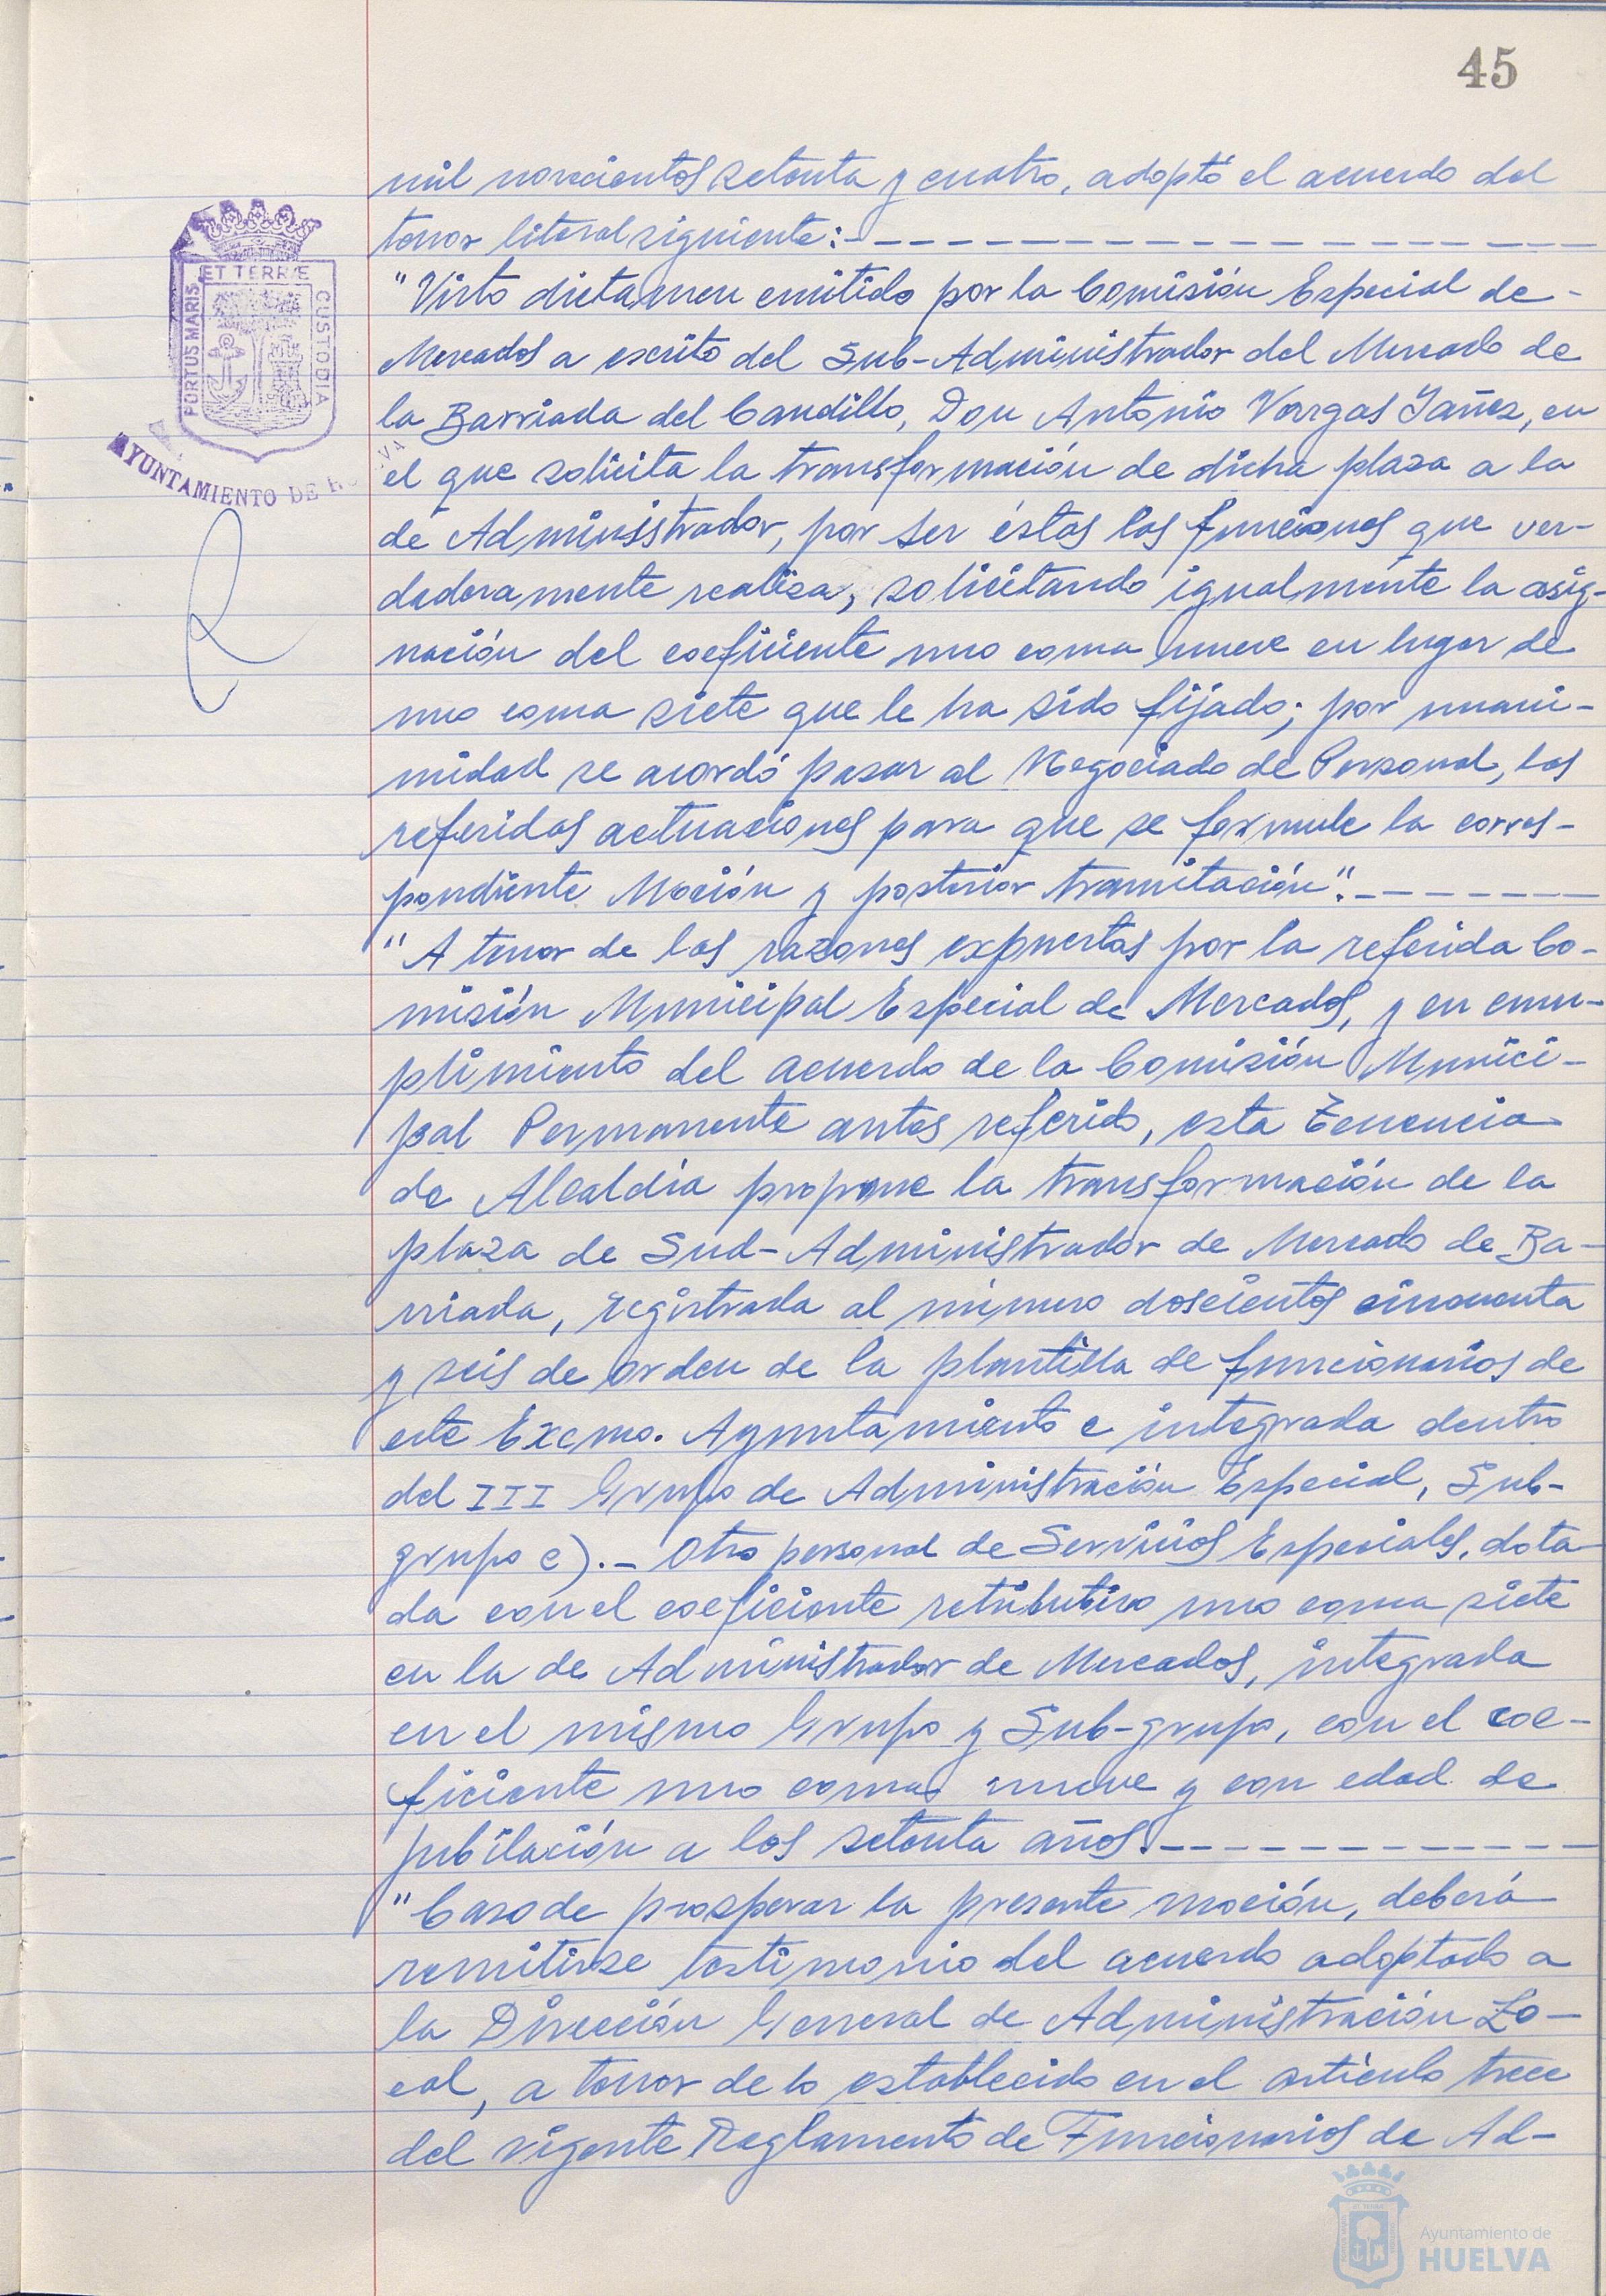 45
mil novecientos setenta y cuatro, adoptó el acuerdo del
tenor literal siguiente:-
"Visto dictamen emitido por la Comisión Especial de-
Mercados a escrito del Sub-Administrador del Mercado de
la Barriada del Caudillo, Don Antonio Vargas Yañez, en
el que solicita la transformación de dicha plaza a la
de Administrador, por ser éstas las funciones que ver-
daderamente realiza, solicitando igualmente la asig-
nación del coeficiente uno coma nueve en lugar de
uno coma siete que le ha sido fijado; por unani-
midad se acordó pasar al Negociado de Personal, las
referidas actuaciones para que se formule la corres-
pondiente Moción y posterior tramitación".-
"A tenor de las razones expuestas por la referida Co-
misión Municipal Especial de Mercados, y en cum-
plimiento del acuerdo de la Comisión Munici-
pal Permanente antes referido, esta Tenencia
de Alcaldía propone la transformación de la
plaza de Sud-Administrador de Mercado de Ba-
rriada, registrada al número doscientos cincuenta
y seis de orden de la plantilla de funcionarios de
este Excmo. Ayuntamiento e integrada dentro
del III Grupo de Administración Especial, Sub-
grupo c).- Otro personal de Servicios Especiales, dota-
da con el coeficiente retributivo uno coma siete
en la de Administrador de Mercados, integrada
en el mismo Grupo y Sub-grupo, con el coe-
ficiente uno coma nueve y con edad de
jubilación a los setenta años.-
"Caso de prosperar la presente moción, deberá
remitirse testimonio del acuerdo adoptado a
la Dirección General de Administración Lo-
cal, a tenor de lo establecido en el artículo trece
del vigente Reglamento de Funcionarios de Ad-
PORTUS MARIS ET TERRÆ CUSTODIA
AYUNTAMIENTO DE
Ayuntamiento de
HUELVA